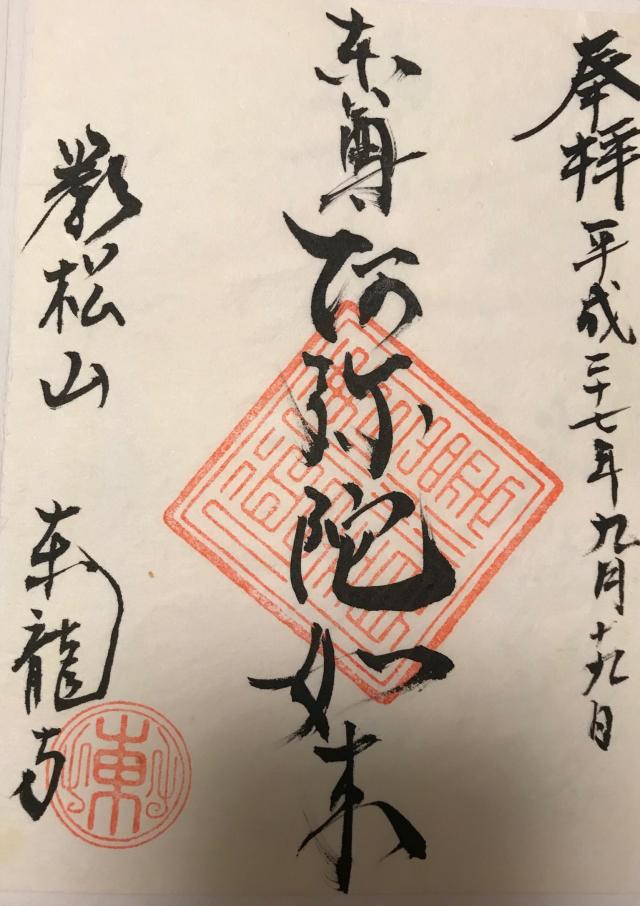 奉拝 平成二十七年九月十九日
本尊 阿弥陀如来
巌松山 東龍寺
東